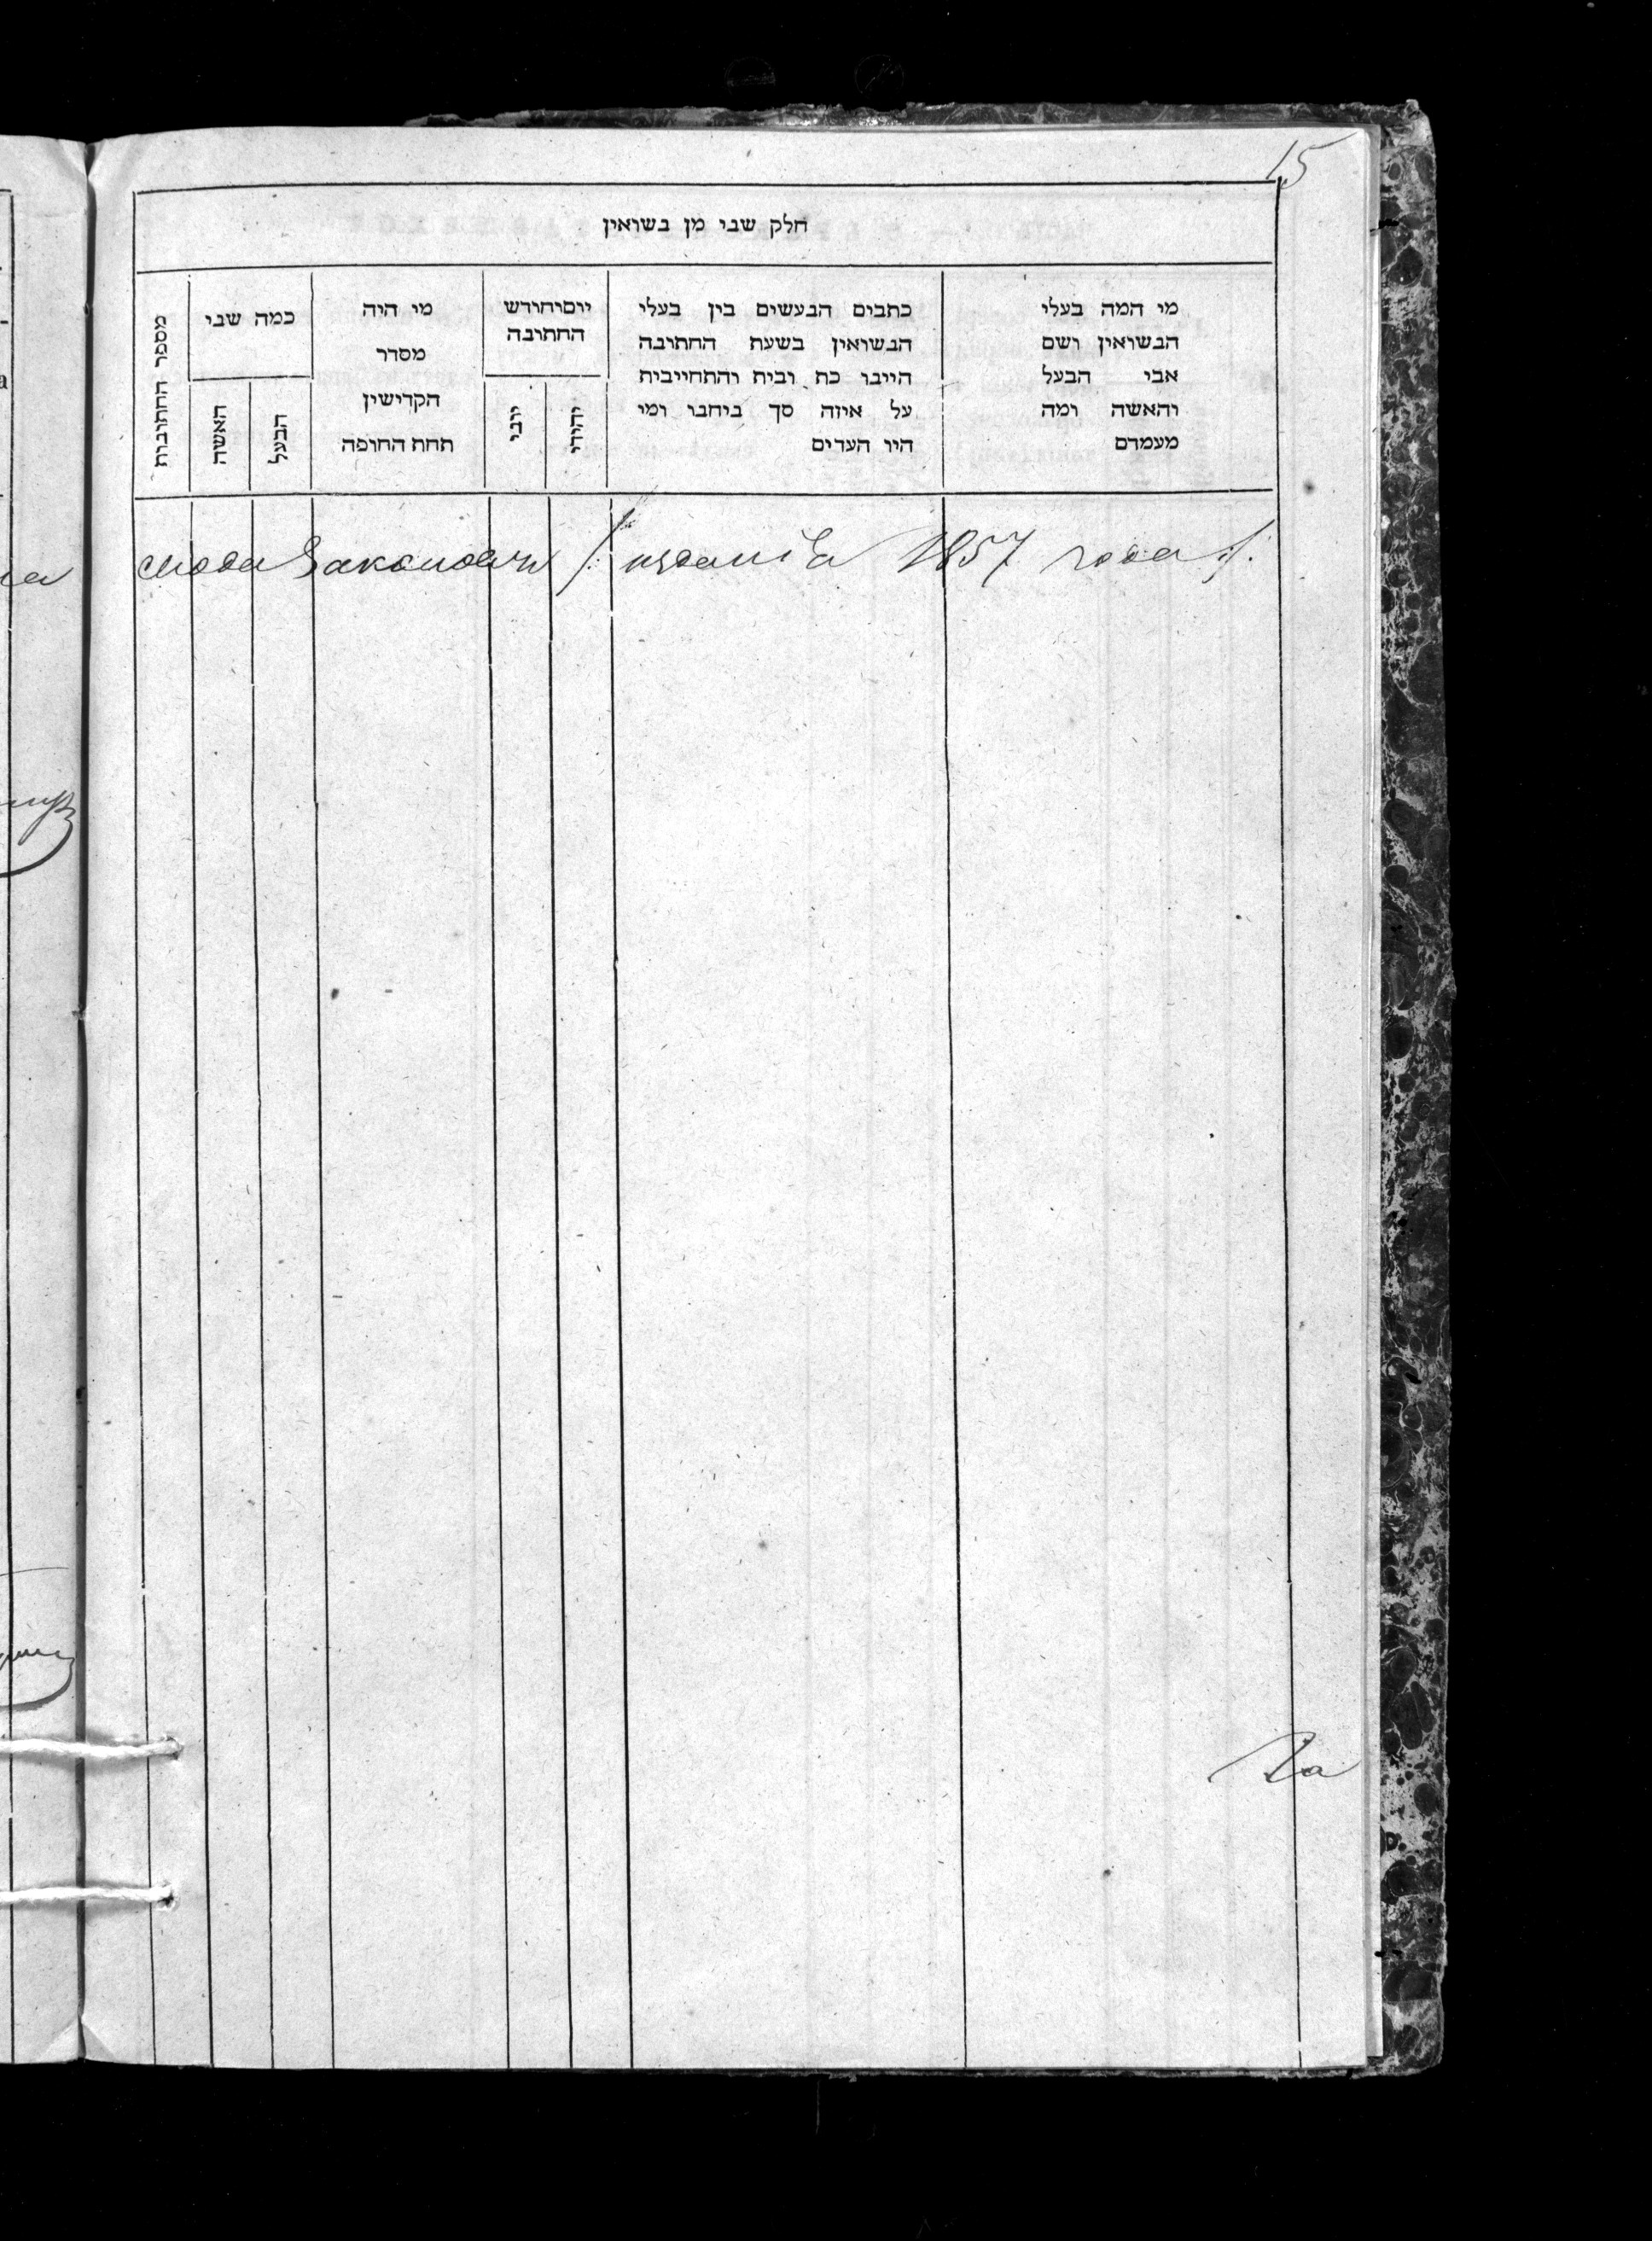 15
חלק שני מן נשואין
מספר החתונות
כמה שני
האשה
הבעל
מי היה
מסדר
הקדישין
תחת החופה
יוםיחודש
החתונה
יוני
יהודי
כתבים הנעשים בין בעלי
הנשואין בשעת החתונה
היינו כת ובית והתחייבית
על איזה סך ביחנו ומי
היו העדים
מי המה בעלי
הנשואין ושם
אבי הבעל
והאשה ומה
מעמדם
свода Законовъ /: изданія 1857 года :/.